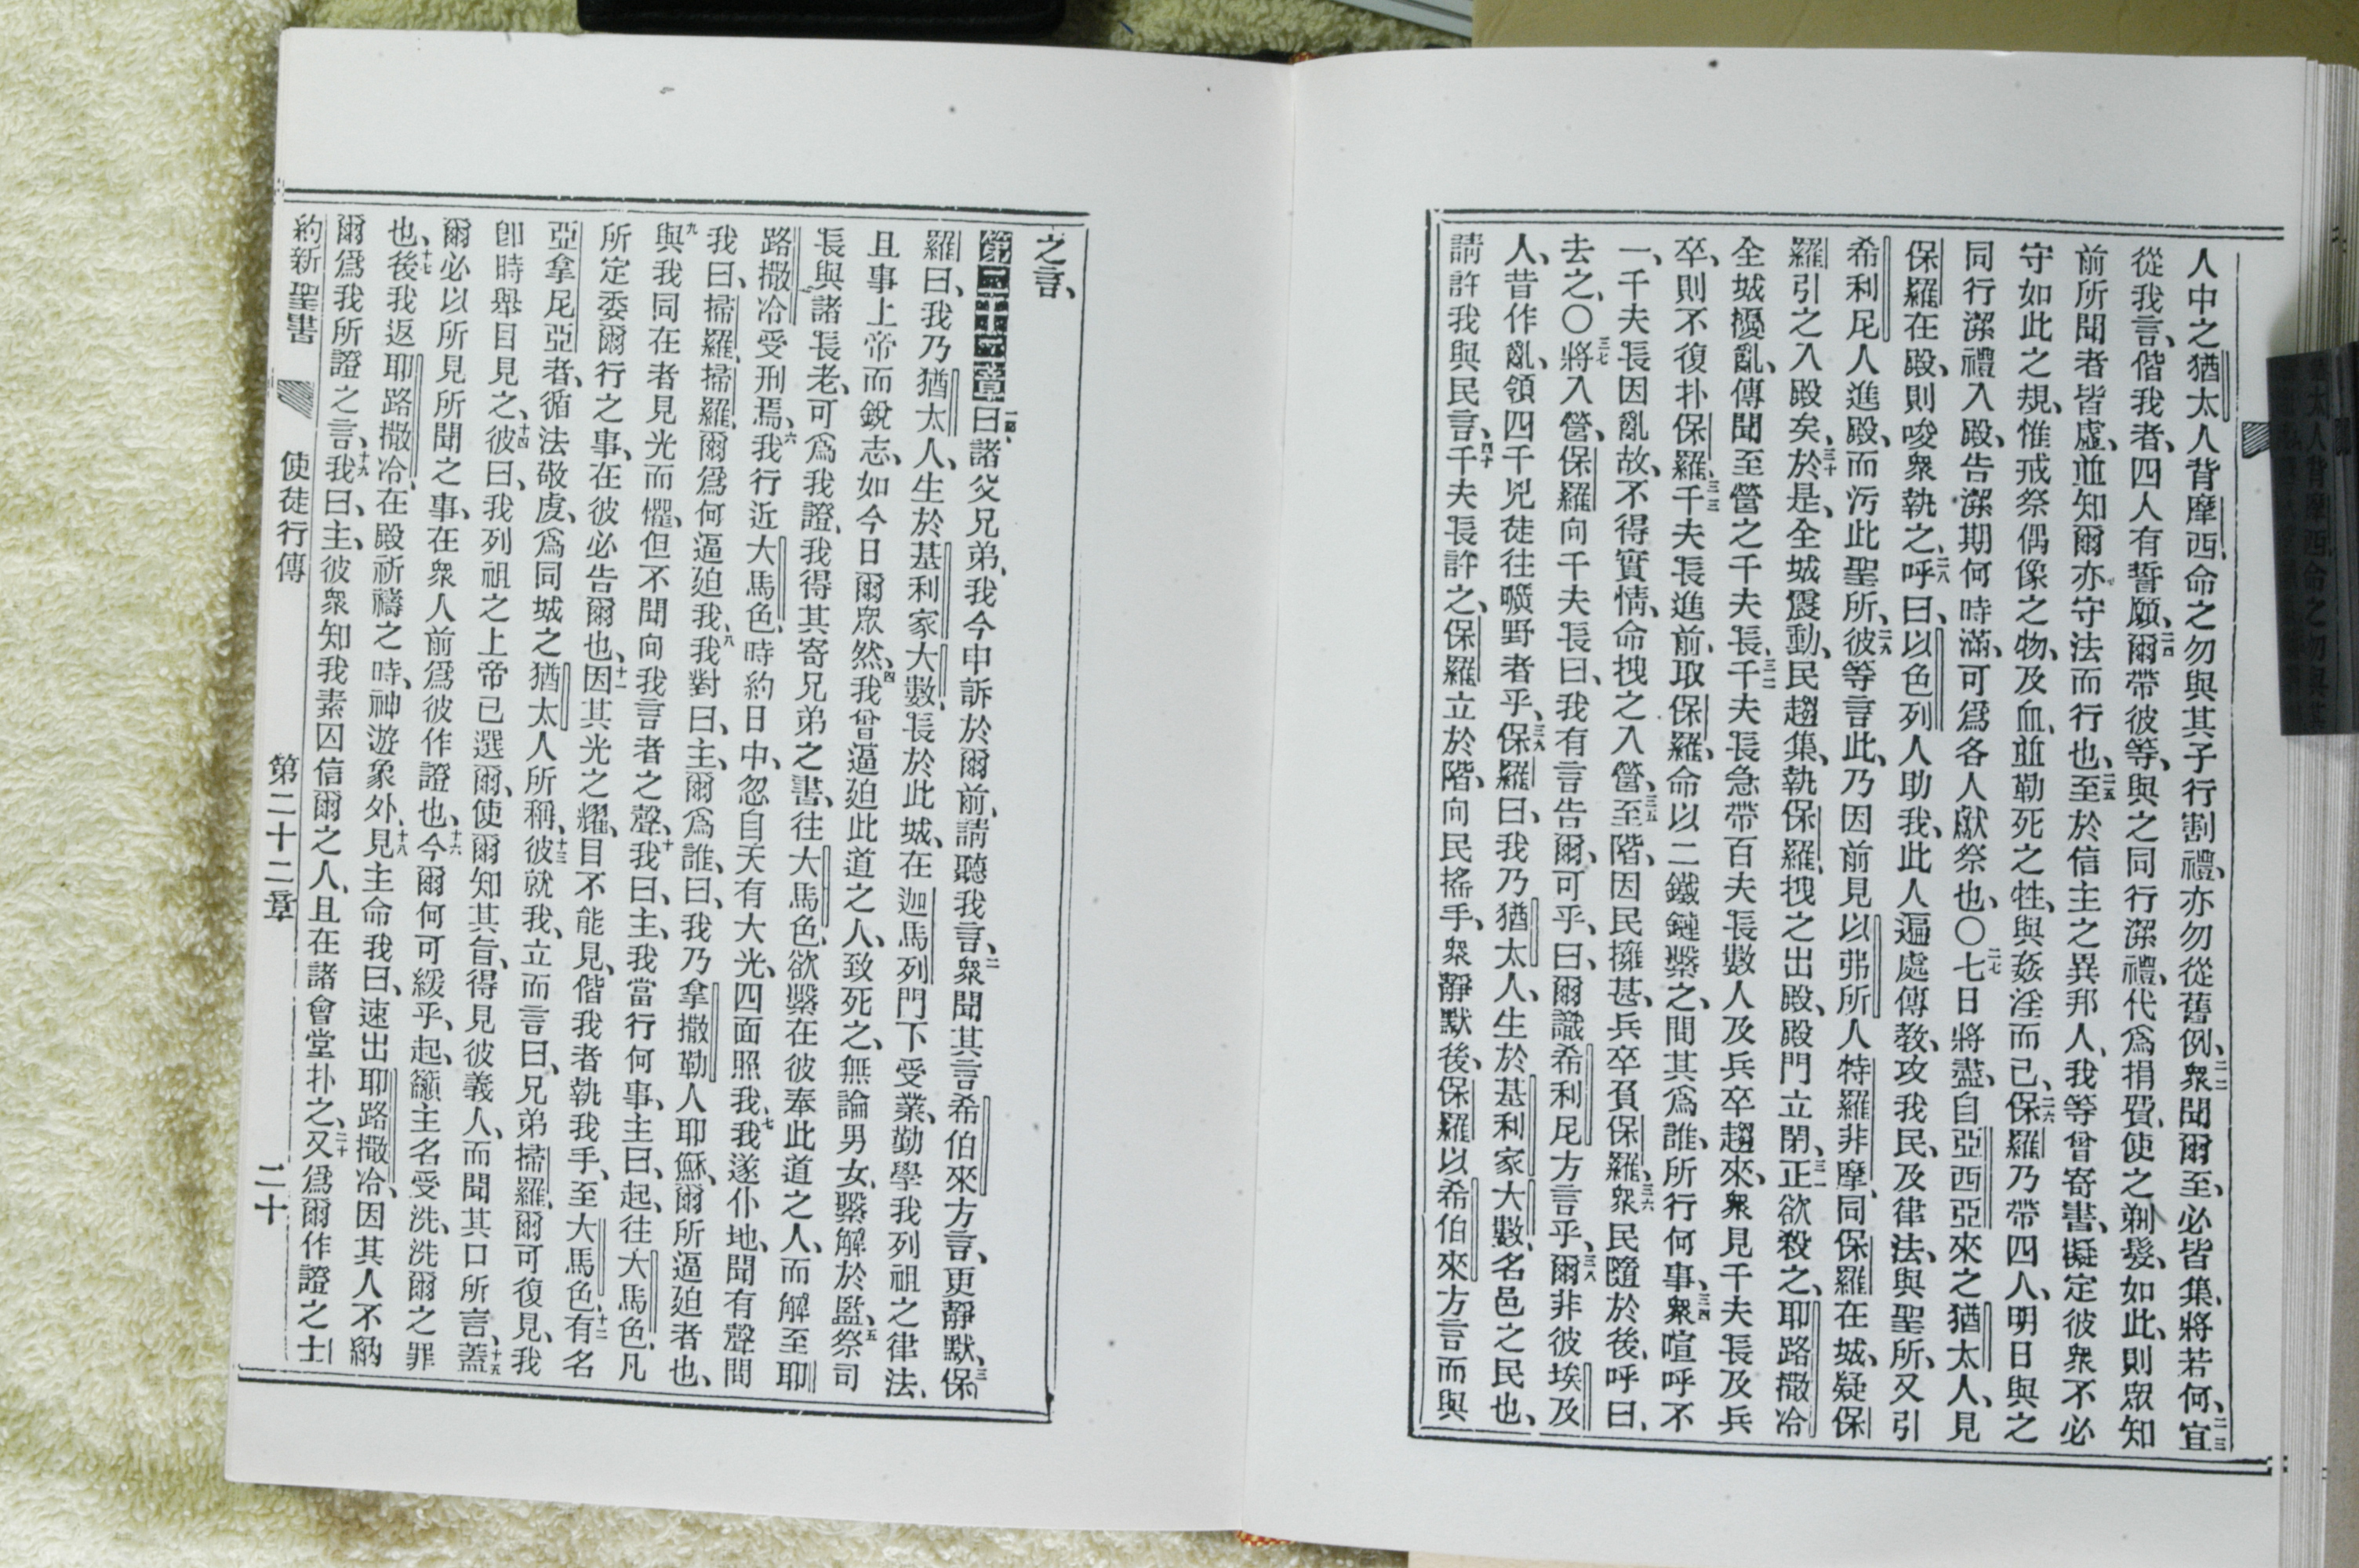 人中之猶太人背摩西、命之勿與其子行割禮、亦勿從舊例、二二衆聞爾至、必皆集、將若何、二三宜
從我言、偕我者、四人有誓願、二四爾帶彼等、與之同行潔禮、代爲捐貲、使之剃髮、如此、則眾知
前所聞者皆虛、並知爾亦守法而行也、二五至於信主之異邦人、我等曾寄書、擬定彼衆不必
守如此之規、惟戒祭偶像之物、及血、並勒死之牲、與姦淫而已、二六保羅乃帶四人、明日與之
同行潔禮入殿、告潔期何時滿、可爲各人獻祭也、〇二七七日將盡、自亞西亞來之猶太人、見
保羅在殿、則唆衆執之、二八呼曰、以色列人助我、此人遍處傳教、攻我民、及律法、與聖所、又引
希利尼人進殿、而污此聖所、二九彼等言此、乃因前見以弗所人特羅非摩、同保羅在城、疑保
羅引之入殿矣、三十於是、全城震動、民趨集、執保羅、拽之出殿、殿門立閉、三一正欲殺之、耶路撒冷
全城擾亂、傳聞至營之千夫長、三二千夫長急帶百夫長數人及兵卒趨來、衆見千夫長及兵
卒、則不復扑保羅、三三千夫長進前、取保羅、命以二鐵鏈繫之、問其爲誰、所行何事、三四衆喧呼不
一、千夫長因亂故、不得實情、命拽之入營、三五至階、因民擁甚、兵卒負保羅、三六衆民隨於後、呼曰、
去之、〇三七將入營、保羅向千夫長曰、我有言告爾、可乎、曰、爾識希利尼方言乎、三八爾非彼埃及
人、昔作亂、領四千兇徒往曠野者乎、三九保羅曰、我乃猶太人、生於基利家大數、名邑之民也、
請許我與民言、四十千夫長許之、保羅立於階、向民搖手、衆靜默後、保羅以希伯來方言而與
之言、
第二十二章一曰、諸父兄弟、我今申訴於爾前、請聽我言、二衆聞其言希伯來方言、更靜默、三保
羅曰、我乃猶太人、生於基利家大數、長於此城、在迦馬列門下受業、勤學我列祖之律法、
且事上帝而銳志、如今日爾眾然、四我曾逼迫此道之人、致死之、無論男女、繫解於監、五祭司
長與諸長老、可爲我證、我得其寄兄弟之書、往大馬色、欲繫在彼奉此道之人、而解至耶
路撒冷受刑焉、六我行近大馬色、時約日中、忽自天有大光、四面照我、七我遂仆地、聞有聲問
我曰、掃羅、掃羅、爾爲何逼迫我、八我對曰、主、爾爲誰、曰、我乃拿撒勒人耶穌、爾所逼迫者也、
九與我同在者見光而懼、但不聞向我言者之聲、十我曰、主、我當行何事、主曰、起、往大馬色、凡
所定委爾行之事、在彼必告爾也、十一因其光之耀、目不能見、偕我者執我手、至大馬色、十二有名
亞拿尼亞者、循法敬虔、爲同城之猶太人所稱、十三彼就我、立而言曰、兄弟掃羅、爾可復見、我
卽時舉目見之、十四彼曰、我列祖之上帝已選爾、使爾知其旨、得見彼義人、而聞其口所言、十五蓋
爾必以所見所聞之事、在衆人前爲彼作證也、十六今爾何可緩乎、起、籲主名受洗、洗爾之罪
也、十七後我返耶路撒冷、在殿祈禱之時、神遊象外、十八見主命我曰、速出耶路撒冷、因其人不納
爾爲我所證之言、十九我曰、主、彼衆知我素囚信爾之人、且在諸會堂扑之、二十又爲爾作證之士
約新聖書 使徒行傳 第二十二章 二十